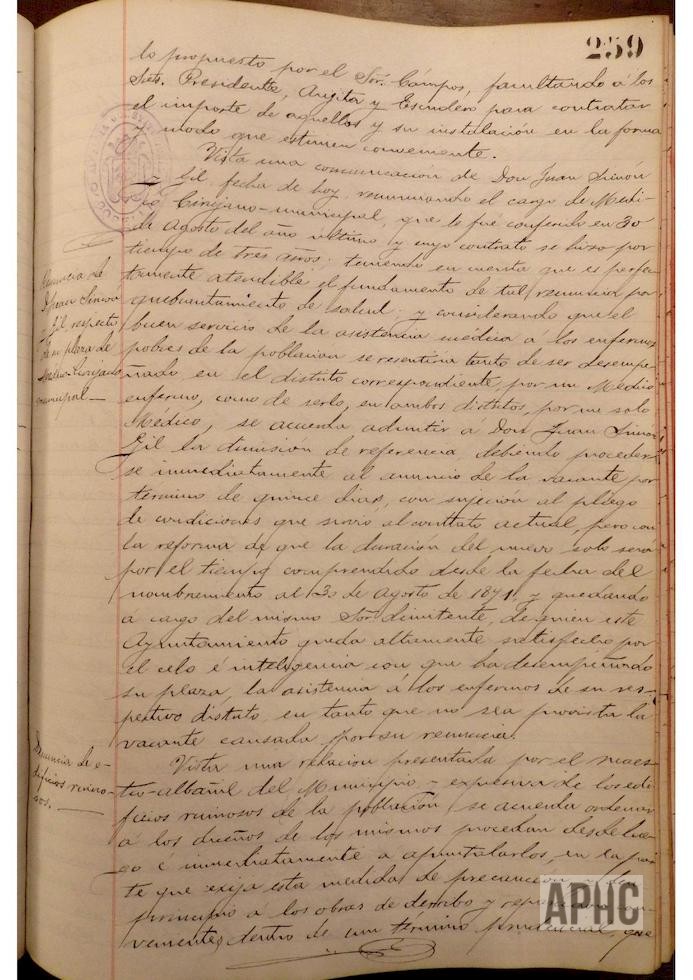 259
lo propuesto por el Sor. Cámpos, facultando á los
Sres. Presidente, Angita y Escudero para contratar
el importe de aquellos y su instalación en la forma
y modo que estimen conveniente.
Vista una comunicacion de Don Juan Simón
Gil, fecha de hoy, renunciando el cargo de Medi-
co Cirujano-municipal, que le fué conferido en 30
de Agosto del año último y cuyo contrato se hizo por
tiempo de tres años; teniendo en cuenta que es perfec-
tamente atendible el fundamento de tal renuncia por
quebrantamiento de salud; y considerando que el
buen servicio de la asistencia médica á los enfermos
pobres de la poblacion se resentiria tanto de ser desempe-
ñado en el distrito correspondiente, por un Médico
enfermo, como de serlo, en ambos distritos, por un solo
Médico, se acuerda admitir á Don Juan Simon
Gil la dimisión de referencia, debiendo proceder-
se inmediatamente al anuncio de la vacante por
término de quince dias, con sujeción al pliego
de condiciones que sirvió al contrato actual, pero con
la reforma de que la duración del nuevo solo será
por el tiempo comprendido desde la fecha del
nombramiento al 30 de Agosto de 1891, y quedando
á cargo del mismo Sor. dimitente, de quien este
Ayuntamiento queda altamente satisfecho por
el celo é inteligencia con que ha desempeñado
su plaza, la asistencia á los enfermos de su res-
pectivo distrito, en tanto que no sea provista la
vacante causada por su renuncia.
Vista una relacion presentada por el maes-
tro-albañil del Municipio - expresiva de los edi-
ficios ruinosos de la población, se acuerda ordenar
á los dueños de los mismos procedan desde lue-
go é inmediatamente a apuntalarlos, en la par-
te que exija esta medida de precaucion y
principio á los obras de derribo y reparacion con-
venientes, dentro de un término prudencial, que
Renuncia de
D. Juan Simón
Gil, respecto
de su plaza de
Médico-Cirujano
municipal -
Denuncia de e-
dificios ruino-
sos. -
APHC